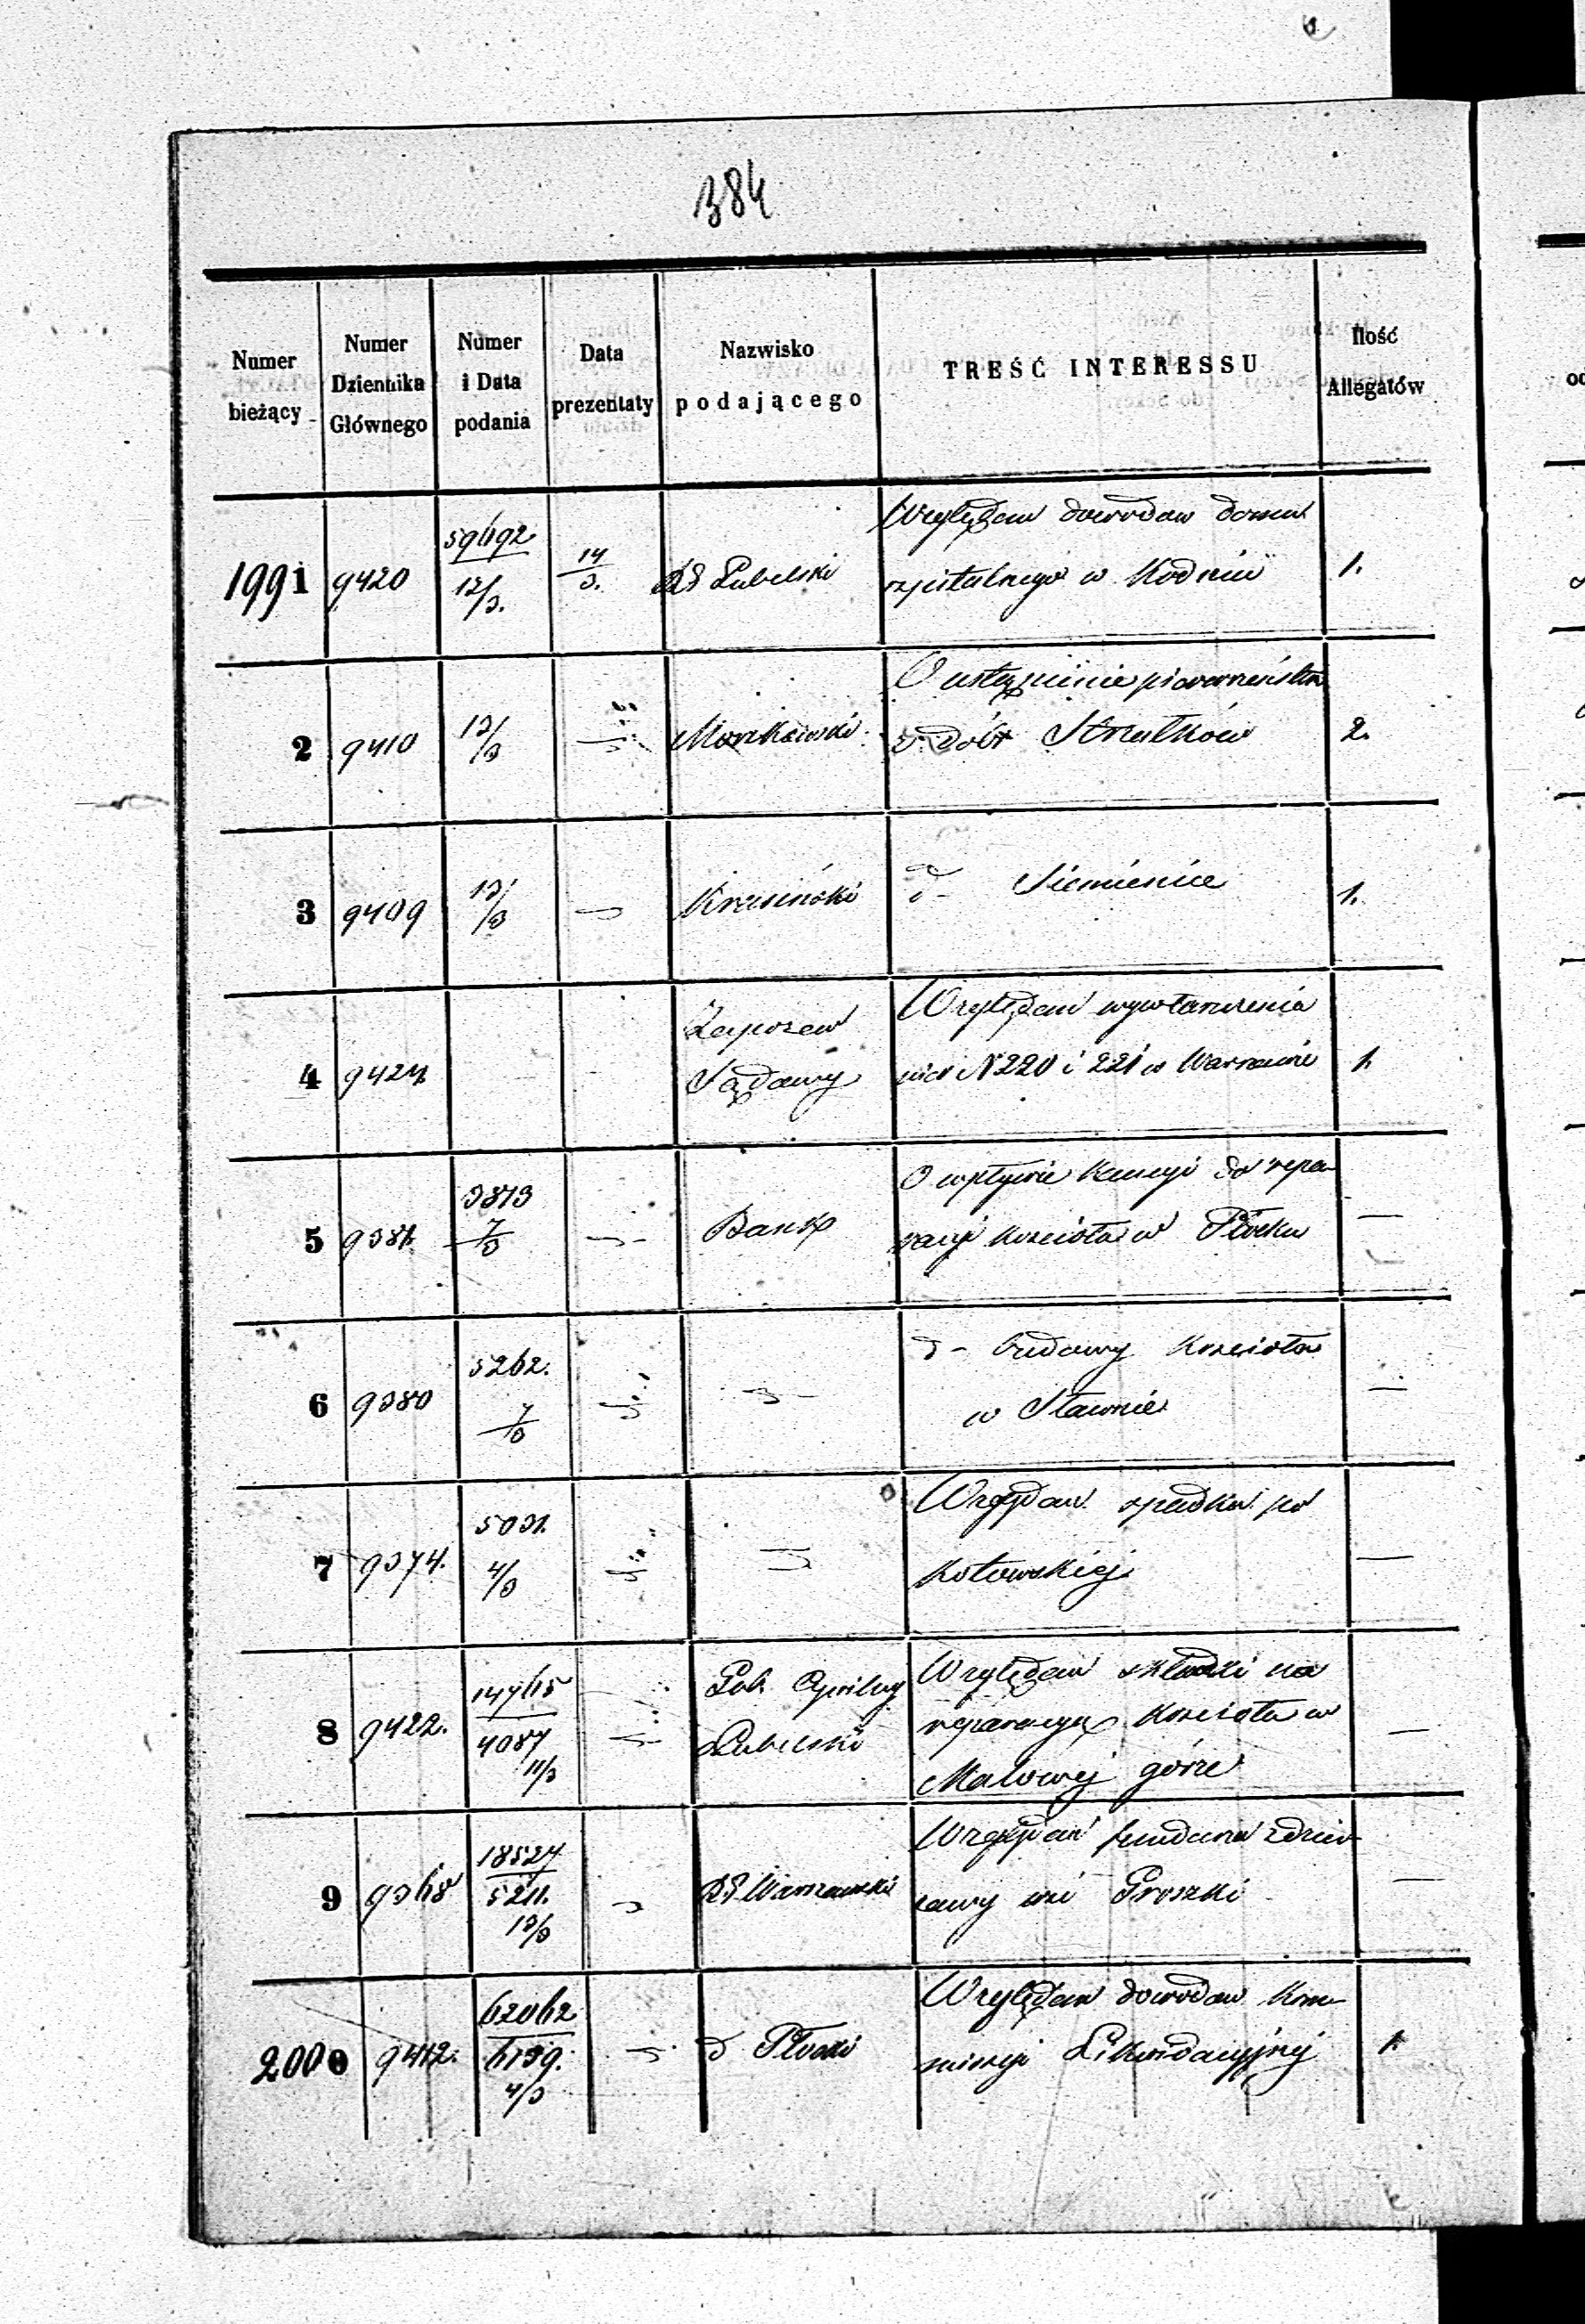 384
Numer bieżący
Numer Dziennika Głównego
Numer i Data podania
Data prezentaty
Nazwisko podającego
TREŚĆ INTERESSU
Ilość Allegatów
1991 9420 59692 12/3. 14/3. RG Lubelski Względem dowodów domu
szpitalnego w Kodniu 1.
2 9410 12/3 O ustąpienie pierwszeństwa
z dóbr Strzałków 2.
3 9409 12/3 Krasiński d- Siemienice 1.
4 Zapozew
Sądowy
Względem wywłaszczenia
nier N 220 i 221 w Warszawie 1.
5 3873 7/3 Bank O wpływie Kaucyi do repa-
racyi kościoła w Płocku —
6 9380 5262. 7/3 d- budowy Kościoła
w Sławnie —
7 9374. 5031. 4/3 Względem spadku po
Kotowskiej —
8 9422. 14765 4087 11/3 Gub. Cywilny
Lubelski
Względem składki na
reparacyą Kościoła w
Malowej górze —
9 9368 18527 5211. 12/3 RG Warszawski Względem funduszu z dzier-
żawy wsi Proszki —
2000 9412. 62062 6139. 4/3 d Płocki Względem dowodów Kom-
missyi Likwidacyjnej 1.